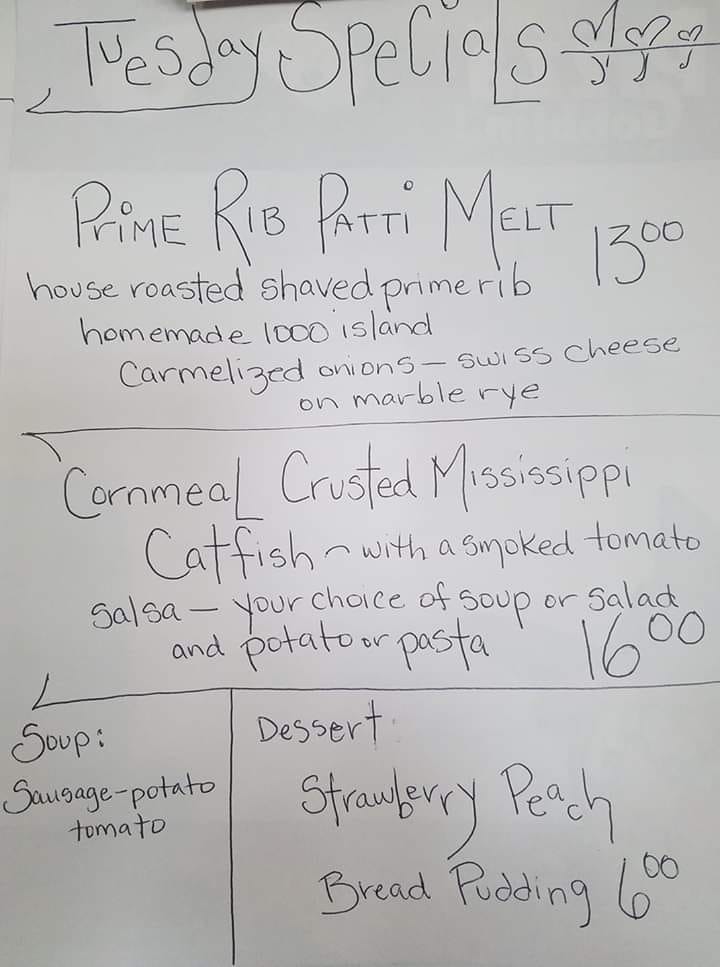 Tuesday Specials
Prime Rib Patti Melt 13.00
house roasted shaved prime rib
homemade 1000 island
Carmelized onions - swiss cheese
on marble rye
Cornmeal Crusted Mississippi
Catfish ~ with a smoked tomato
salsa - your choice of soup or salad
and potato or pasta 16.00
Soup:
Sausage-potato
tomato
Dessert
Strawberry Peach
Bread Pudding 6.00